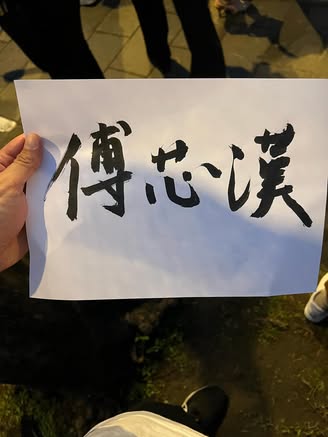 傅芯漢